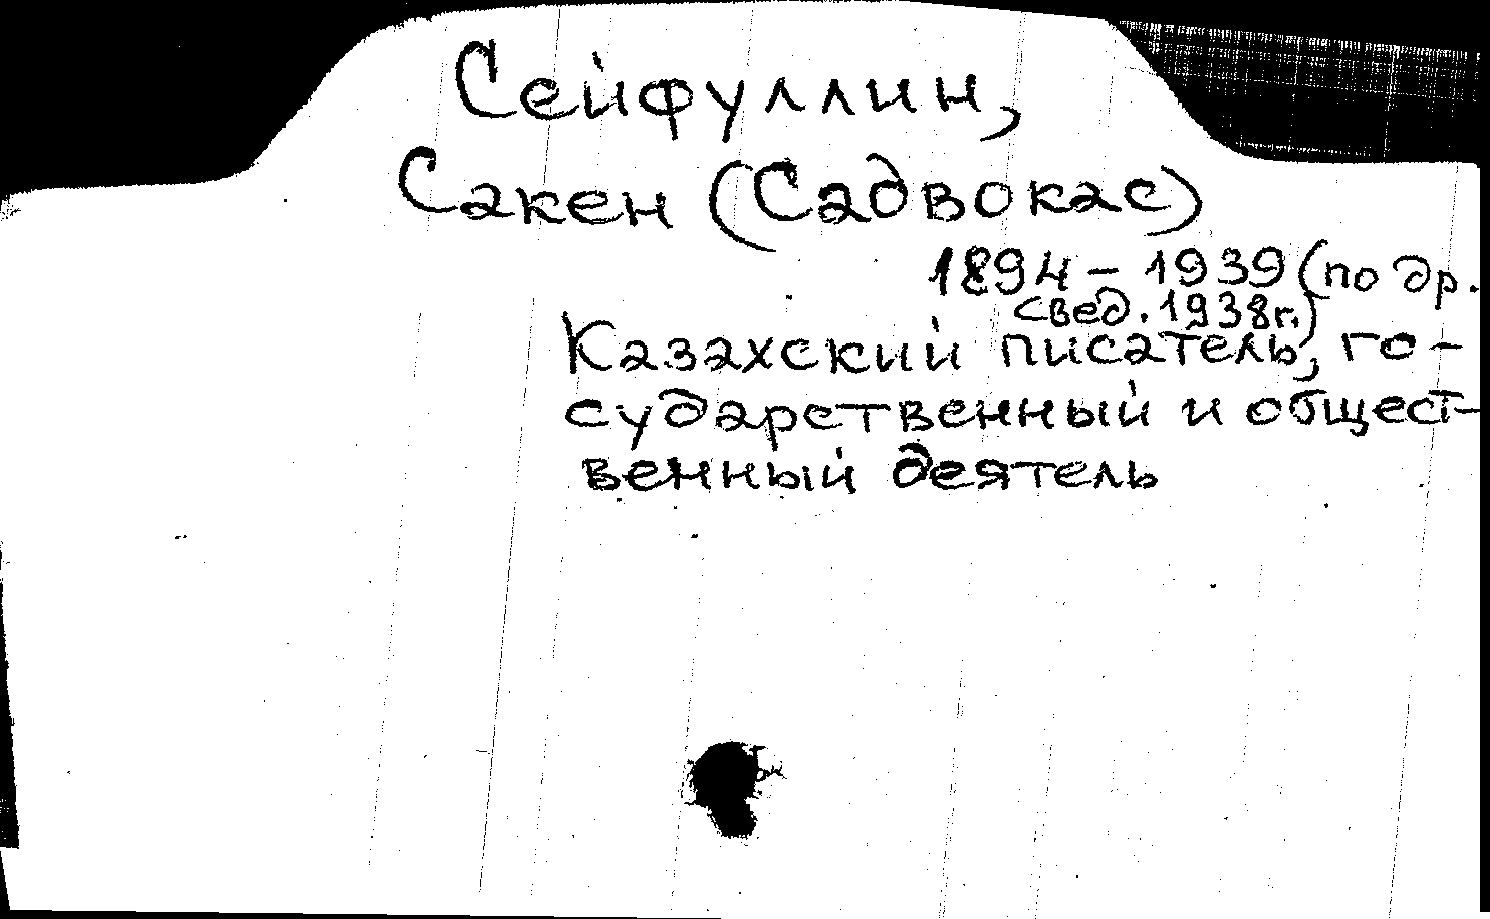 Сейфуллин,
Сакен (Садвокас)
1894 – 1939 (по др.
свед. 1938г.)
Казахский писатель, го-
сударственный и общест-
венный деятель